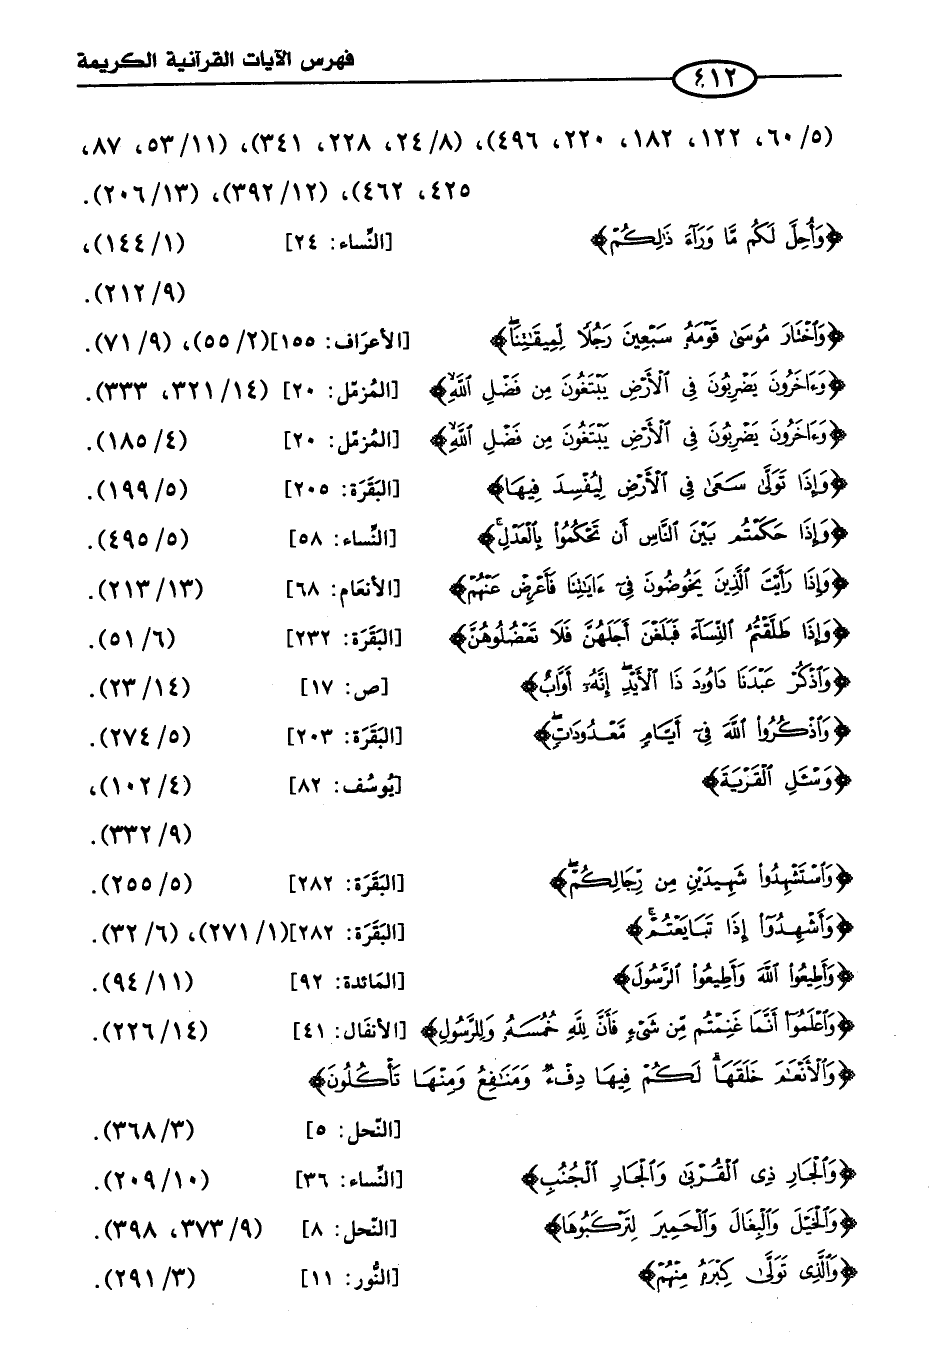 فهرس الآيات القرآنية الكريمة
٤١٢
(٥/ ٦٠، ١٢٢، ١٨٢، ٢٢٠، ٤٩٦)، (٨/ ٢٤، ٢٢٨، ٣٤١)، (١١/ ٥٣، ٨٧،
٤٢٥، ٤٦٢)، (١٢/ ٣٩٢)، (١٣/ ٢٠٦).
﴿وَأُحِلَّ لَكُم مَّا وَرَآءَ ذَٰلِكُمْ﴾ [النِّساء: ٢٤] (١/ ١٤٤)،
(٩/ ٢١٢).
﴿وَٱخْتَارَ مُوسَىٰ قَوْمَهُۥ سَبْعِينَ رَجُلًا لِّمِيقَٰتِنَاۖ﴾ [الأعرَاف: ١٥٥] (٢/ ٥٥)، (٩/ ٧١).
﴿وَءَاخَرُونَ يَضْرِبُونَ فِى ٱلْأَرْضِ يَبْتَغُونَ مِن فَضْلِ ٱللَّهِۙ﴾ [المُزمّل: ٢٠] (١٤/ ٣٢١، ٣٣٣).
﴿وَءَاخَرُونَ يَضْرِبُونَ فِى ٱلْأَرْضِ يَبْتَغُونَ مِن فَضْلِ ٱللَّهِۙ﴾ [المُزمّل: ٢٠] (٤/ ١٨٥).
﴿وَإِذَا تَوَلَّىٰ سَعَىٰ فِى ٱلْأَرْضِ لِيُفْسِدَ فِيهَا﴾ [البَقَرَة: ٢٠٥] (٥/ ١٩٩).
﴿وَإِذَا حَكَمْتُم بَيْنَ ٱلنَّاسِ أَن تَحْكُمُوا۟ بِٱلْعَدْلِۚ﴾ [النِّساء: ٥٨] (٥/ ٤٩٥).
﴿وَإِذَا رَأَيْتَ ٱلَّذِينَ يَخُوضُونَ فِىٓ ءَايَٰتِنَا فَأَعْرِضْ عَنْهُمْ﴾ [الأنعَام: ٦٨] (١٣/ ٢١٣).
﴿وَإِذَا طَلَّقْتُمُ ٱلنِّسَآءَ فَبَلَغْنَ أَجَلَهُنَّ فَلَا تَعْضُلُوهُنَّ﴾ [البَقَرَة: ٢٣٢] (٦/ ٥١).
﴿وَٱذْكُرْ عَبْدَنَا دَاوُۥدَ ذَا ٱلْأَيْدِۖ إِنَّهُۥٓ أَوَّابٌ﴾ [ص: ١٧] (١٤/ ٢٣).
﴿وَٱذْكُرُوا۟ ٱللَّهَ فِىٓ أَيَّامٍ مَّعْدُودَٰتٍۖ﴾ [البَقَرَة: ٢٠٣] (٥/ ٢٧٤).
﴿وَسْـَٔلِ ٱلْقَرْيَةَ﴾ [يُوسُف: ٨٢] (٤/ ١٠٢)،
(٩/ ٣٣٢).
﴿وَٱسْتَشْهِدُوا۟ شَهِيدَيْنِ مِن رِّجَالِكُمْۖ﴾ [البَقَرَة: ٢٨٢] (٥/ ٢٥٥).
﴿وَأَشْهِدُوٓا۟ إِذَا تَبَايَعْتُمْۚ﴾ [البَقَرَة: ٢٨٢] (١/ ٢٧١)، (٦/ ٣٢).
﴿وَأَطِيعُوا۟ ٱللَّهَ وَأَطِيعُوا۟ ٱلرَّسُولَ﴾ [المَائدة: ٩٢] (١١/ ٩٤).
﴿وَٱعْلَمُوٓا۟ أَنَّمَا غَنِمْتُم مِّن شَىْءٍ فَأَنَّ لِلَّهِ خُمُسَهُۥ وَلِلرَّسُولِ﴾ [الأنفَال: ٤١] (١٤/ ٢٢٦).
﴿وَٱلْأَنْعَٰمَ خَلَقَهَاۗ لَكُمْ فِيهَا دِفْءٌ وَمَنَٰفِعُ وَمِنْهَا تَأْكُلُونَ﴾
[النّحل: ٥] (٣/ ٣٦٨).
﴿وَٱلْجَارِ ذِى ٱلْقُرْبَىٰ وَٱلْجَارِ ٱلْجُنُبِ﴾ [النِّساء: ٣٦] (١٠/ ٢٠٩).
﴿وَٱلْخَيْلَ وَٱلْبِغَالَ وَٱلْحَمِيرَ لِتَرْكَبُوهَا﴾ [النّحل: ٨] (٩/ ٣٧٣، ٣٩٨).
﴿وَٱلَّذِى تَوَلَّىٰ كِبْرَهُۥ مِنْهُمْ﴾ [النُّور: ١١] (٣/ ٢٩١).